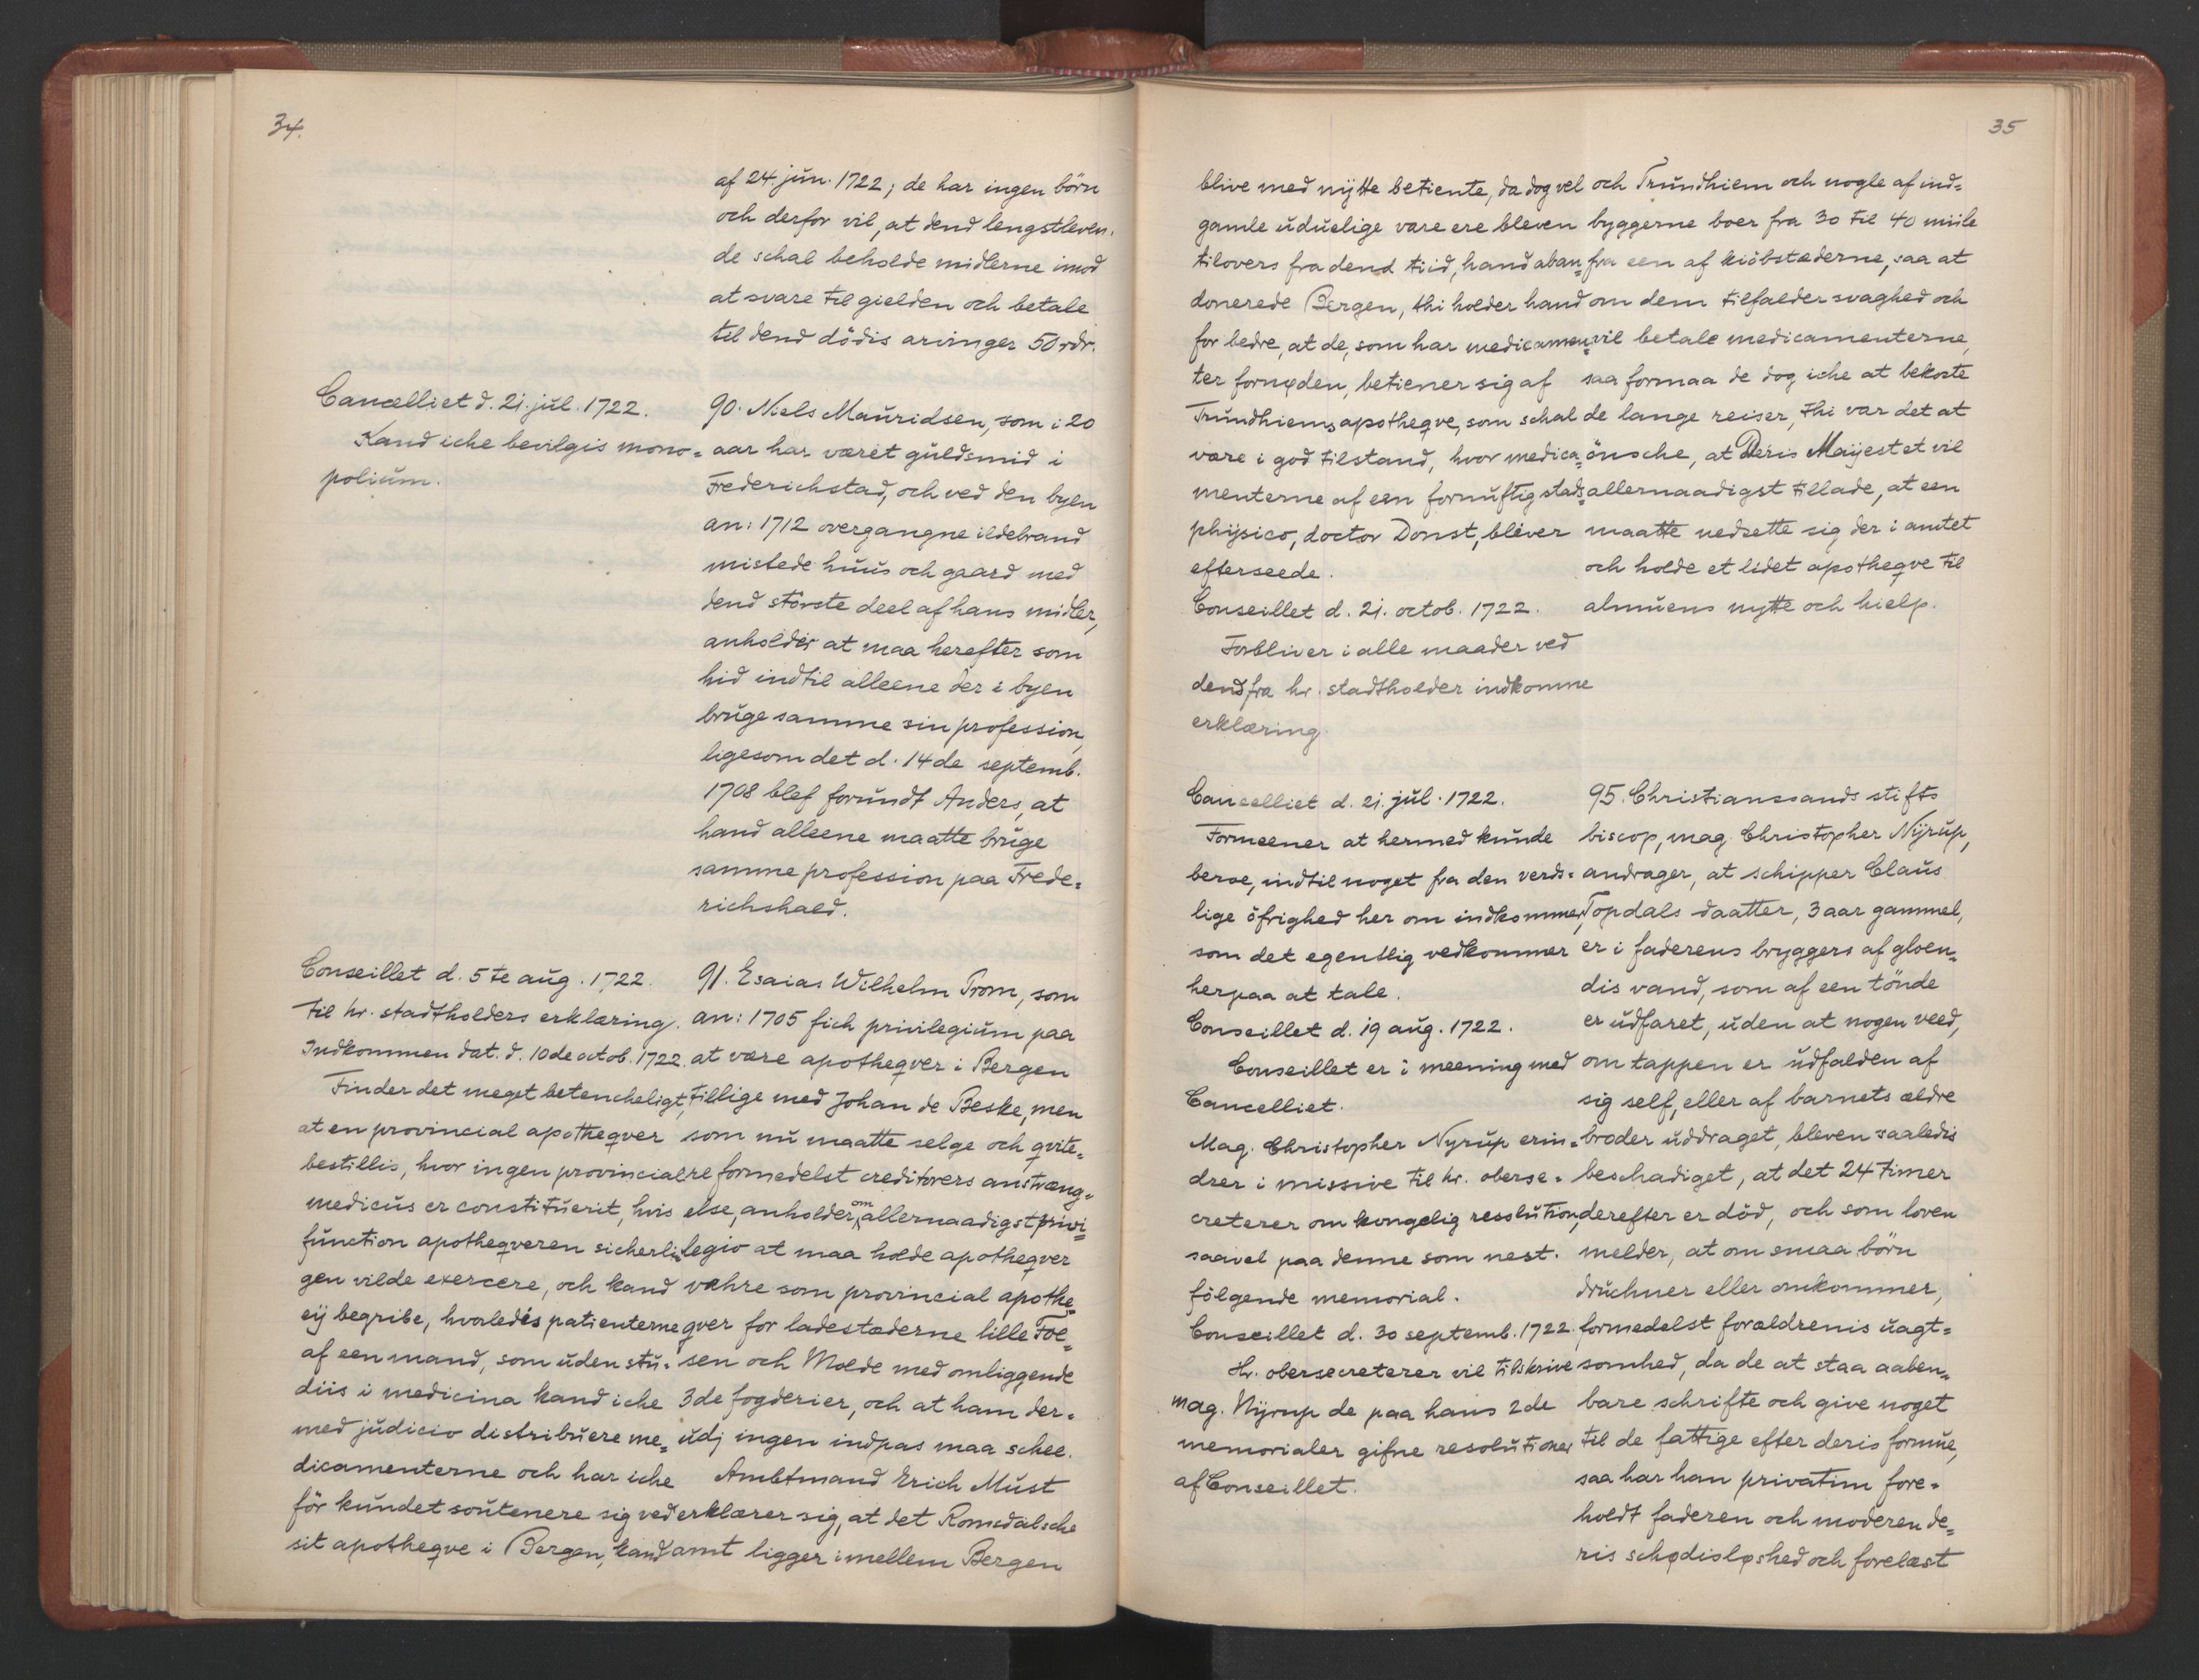 34.
af 24 jun. 1722; de har ingen börn
och derfor vil, at dend lengstleven-
de schal beholde midlerne imod
at svare til gielden och betale
til dend dödis arvinger 50 rdr.
Cancelliet d. 21. jul. 1722.
Kand iche bevilgis mono=
polium.
90. Niels Mauridsen, som i 20
aar har været guldsmid i
Frederichstad, och ved den byen
an: 1712 overgangne ildebrand
mistede huus och gaard med
dend störste deel af hans midler,
anholder at maa herefter som
hid indtil alleene der i byen
bruge samme sin profession,
ligesom det d. 14de septemb.
1708 blef forundt Anders, at
hand alleene maatte bruge
samme profession paa Frede=
richshald.
Conseillet d. 5te aug. 1722.
Til hr. stadtholders erklæring.
Indkommen dat. d. 10de octob. 1722.
Finder det meget betencheligt,
at en provincial apotheqver
bestillis, hvor ingen provincial
medicus er constituerit, hvis
function apotheqveren sicherli=
gen vilde exercere, och kand
eÿ begribe, hvorledes patienterne
af een mand, som uden stu=
diis i medicina kand iche
med judicio distribuere me=
dicamenterne och har iche
för kundet soutenere sig ved
sit apotheqve i Bergen, kand
91. Esaias Wilhelm Prom, som
an: 1705 fich privilegium paa
at være apotheqver i Bergen
tillige med Johan de Beske, men
som nu maatte selge och qvite=
re formedelst creditorers anstræng=
else, anholder om allernaadigst privi=
legio at maa holde apotheqver
vahre som provincial apothe=
qver for ladestæderne lille Foe=
sen och Molde med omliggende
3de fogderier, och at ham der=
udj ingen indpas maa schee.
Ambtmand Erich Must
erklærer sig, at det Romsdalsche
amt ligger imellem Bergen
35
blive med nÿtte betiente, da dog vel
gamle uduelige vare ere bleven
tilovers fra dend tiid, hand aban=
donerede Bergen, thi holder hand
for bedre, at de, som har medicamen=
ter fornøden, betiener sig af
Trundhiems apotheqve, som schal
være i god tilstand, hvor medica=
menterne af een fornuftig stads=
phÿsico, doctor Donst, bliver
efterseede.
Conseillet d. 21. octob. 1722.
Forbliver i alle maader ved
dend fra hr. stadtholder indkomne
erklæring.
och Trundhiem och nogle af ind=
byggerne boer fra 30 til 40 miile
fra een af kiöbstæderne, saa at
om dem tilfalder svaghed och
vil betale medicamenterne,
saa formaa de dog iche at bekoste
de lange reiser, thi var det at
önsche, at Deris Maÿestet vil
allernaadigst tillade, at een
maatte nedsette sig der i amtet
och holde et lidet apotheqve til
almuens nytte och hielp.
Cancelliet d. 21. jul. 1722.
Formeener at hermed kunde
beroe, indtil noget fra den verds=
lige öfrighed her om indkommer,
som det egentlig vedkommer
herpaa at tale.
Conseillet d. 19 aug. 1722.
Conseillet er i meening med
Cancelliet.
Mag. Christopher Nyrup erin=
drer i missive til hr. oberse=
creterer om kongelig resolution,
saavel paa denne som nest.
fölgende memorial.
Conseillet d. 30 septemb. 1722.
Hr. obersecreterer vil tilskrive
mag. Nÿrup de paa hans 2de
memorialer gifne resolutioner
af Conseillet.
95. Christianssands stifts
biscop, mag. Christopher Nÿrup,
andrager, at schipper Claus
Topdals daatter, 3 aar gammel,
er i faderens bryggers af gloen=
dis vand, som af een tönde
er udfaret, uden at nogen veed,
om tappen er udfalden af
sig self, eller af barnets ældre
broder uddraget, bleven saaledis
beschadiget, at det 24 timer
derefter er död, och som loven
melder, at om smaa börn
druchner eller omkommer,
formedelst forældrenis uagt=
somhed, da de at staa aaben=
bare schrifte och give noget
til de fattige efter deris formue,
saa har han privatim fore=
holdt faderen och moderen de=
ris schødisløshed och forelæst